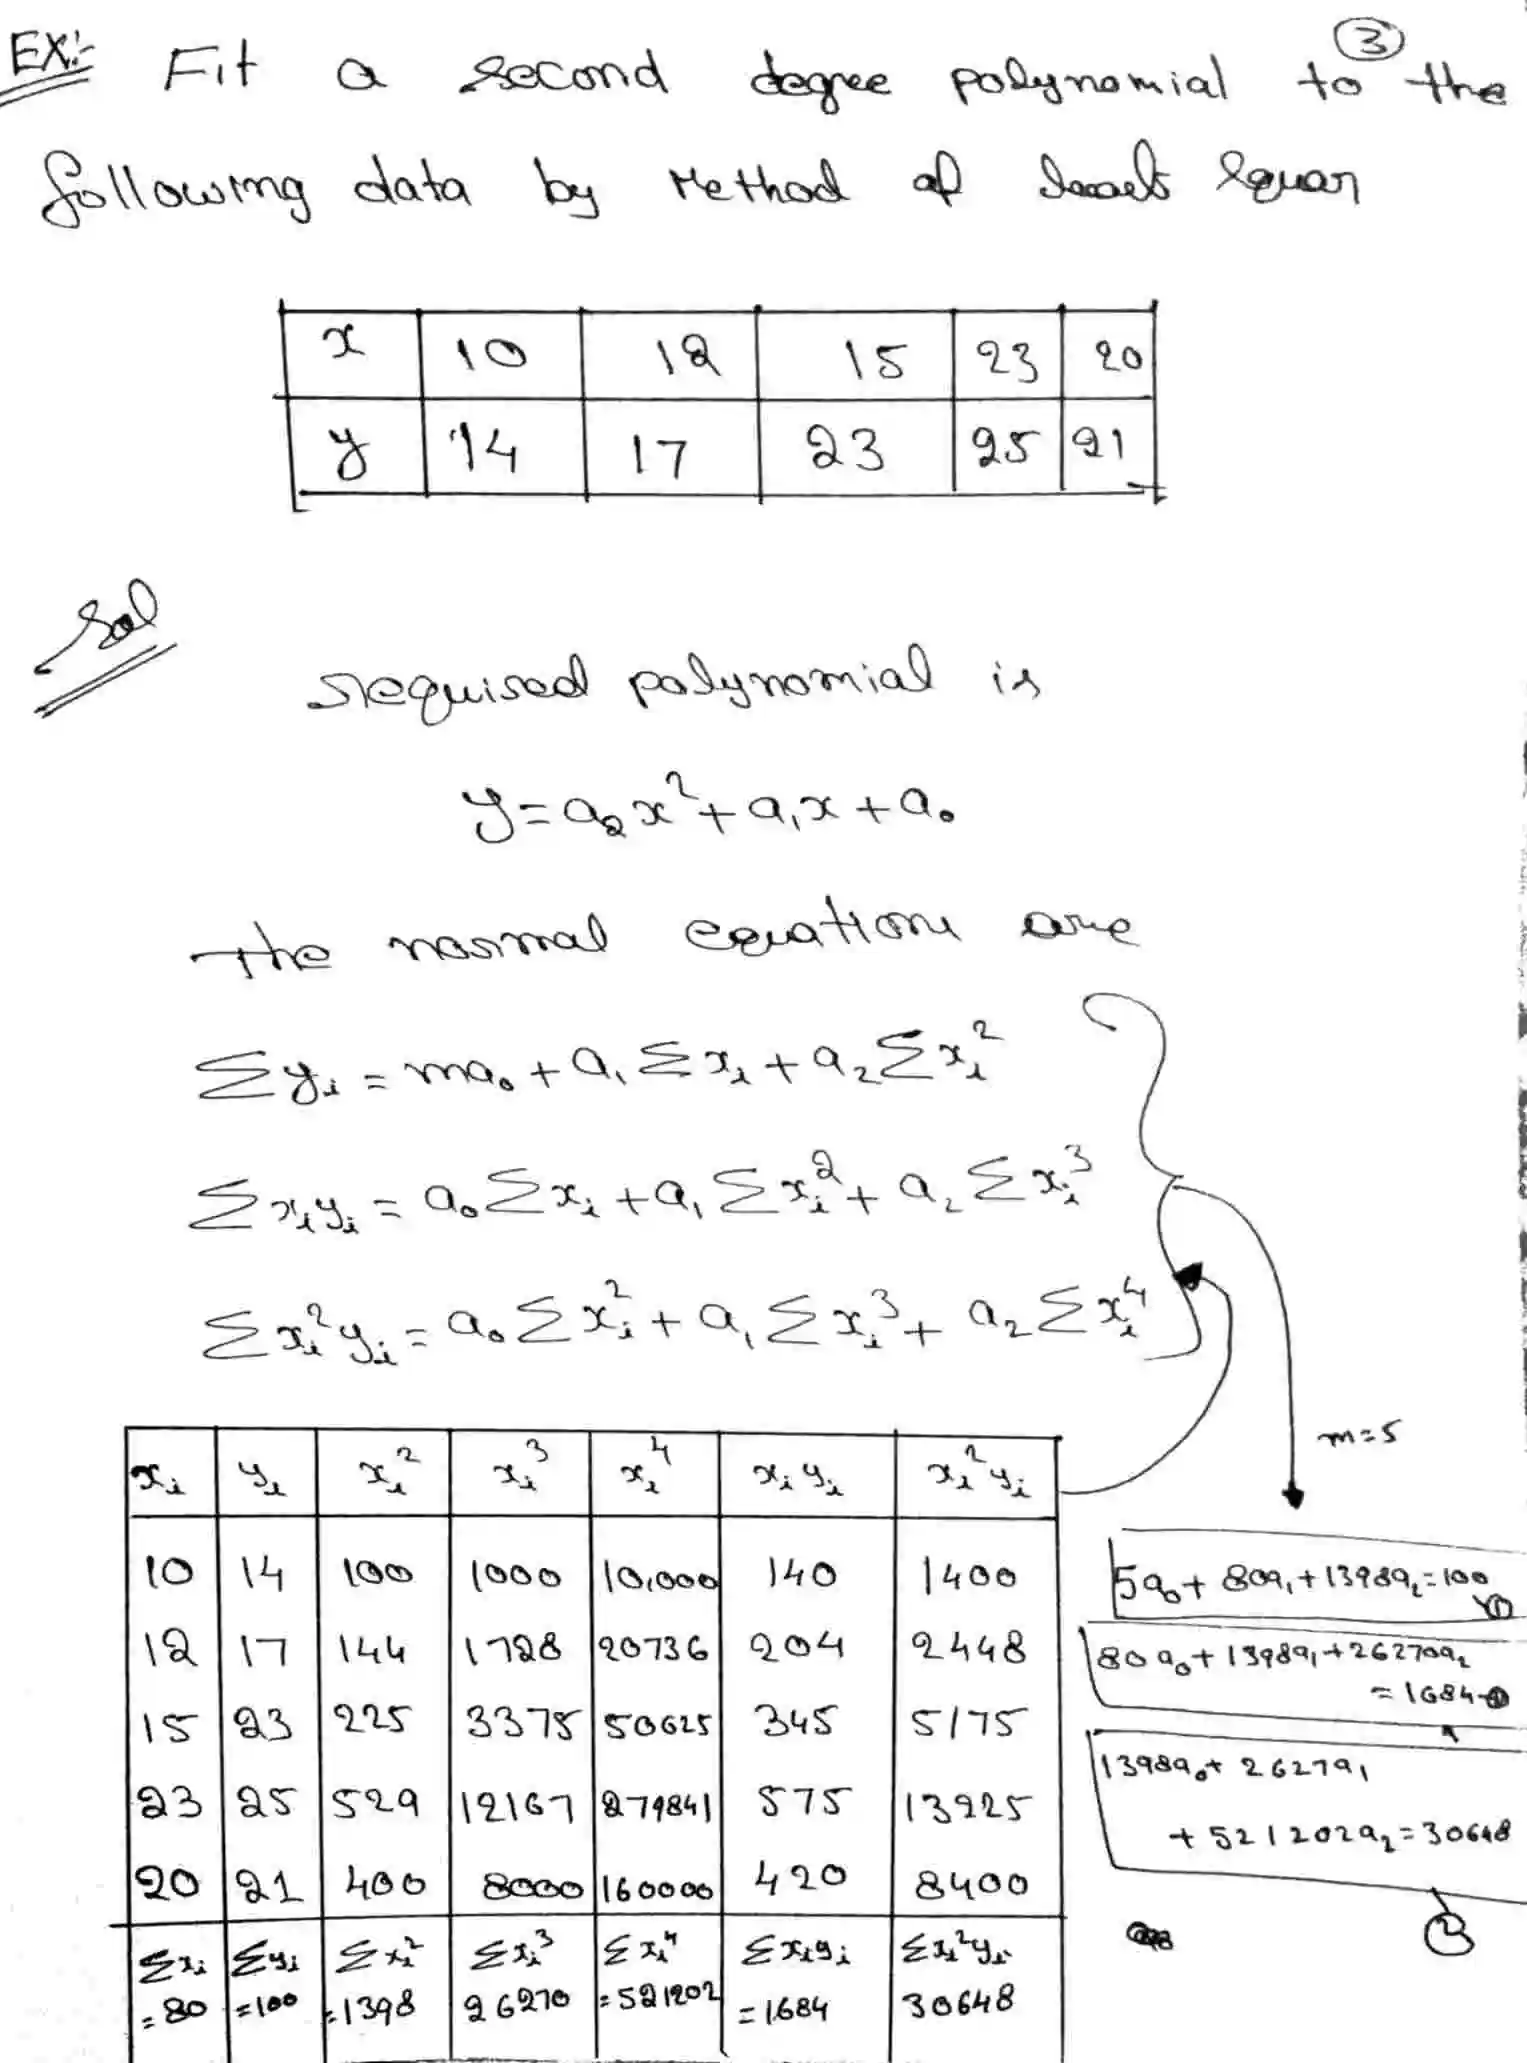 EX:- Fit a second degree polynomial to the
③
following data by Method of
x 10 12 15 23 20
y 14 17 23 25 21
Sol
required polynomial is
y = a₂x² + a₁x + a₀
the normal equations are
Σyᵢ = ma₀ + a₁Σxᵢ + a₂Σxᵢ²
Σxᵢyᵢ = a₀Σxᵢ + a₁Σxᵢ² + a₂Σxᵢ³
Σxᵢ²yᵢ = a₀Σxᵢ² + a₁Σxᵢ³ + a₂Σxᵢ⁴
m=5
xᵢ yᵢ xᵢ² xᵢ³ xᵢ⁴ xᵢyᵢ xᵢ²yᵢ
10 14 100 1000 10,000 140 1400
12 17 144 1728 20736 204 2448
15 23 225 3375 50625 345 5175
23 25 529 12167 279841 575 13225
20 21 400 8000 160000 420 8400
Σxᵢ Σyᵢ Σxᵢ² Σxᵢ³ Σxᵢ⁴ Σxᵢyᵢ Σxᵢ²yᵢ
=80 =100 =1398 26270 =521202 =1684 30648
5a₀+ 80a₁+1398a₂=100
①
80a₀+ 1398a₁+26270a₂
=1684-②
1398a₀+ 2627a₁
+ 521202a₂=30648